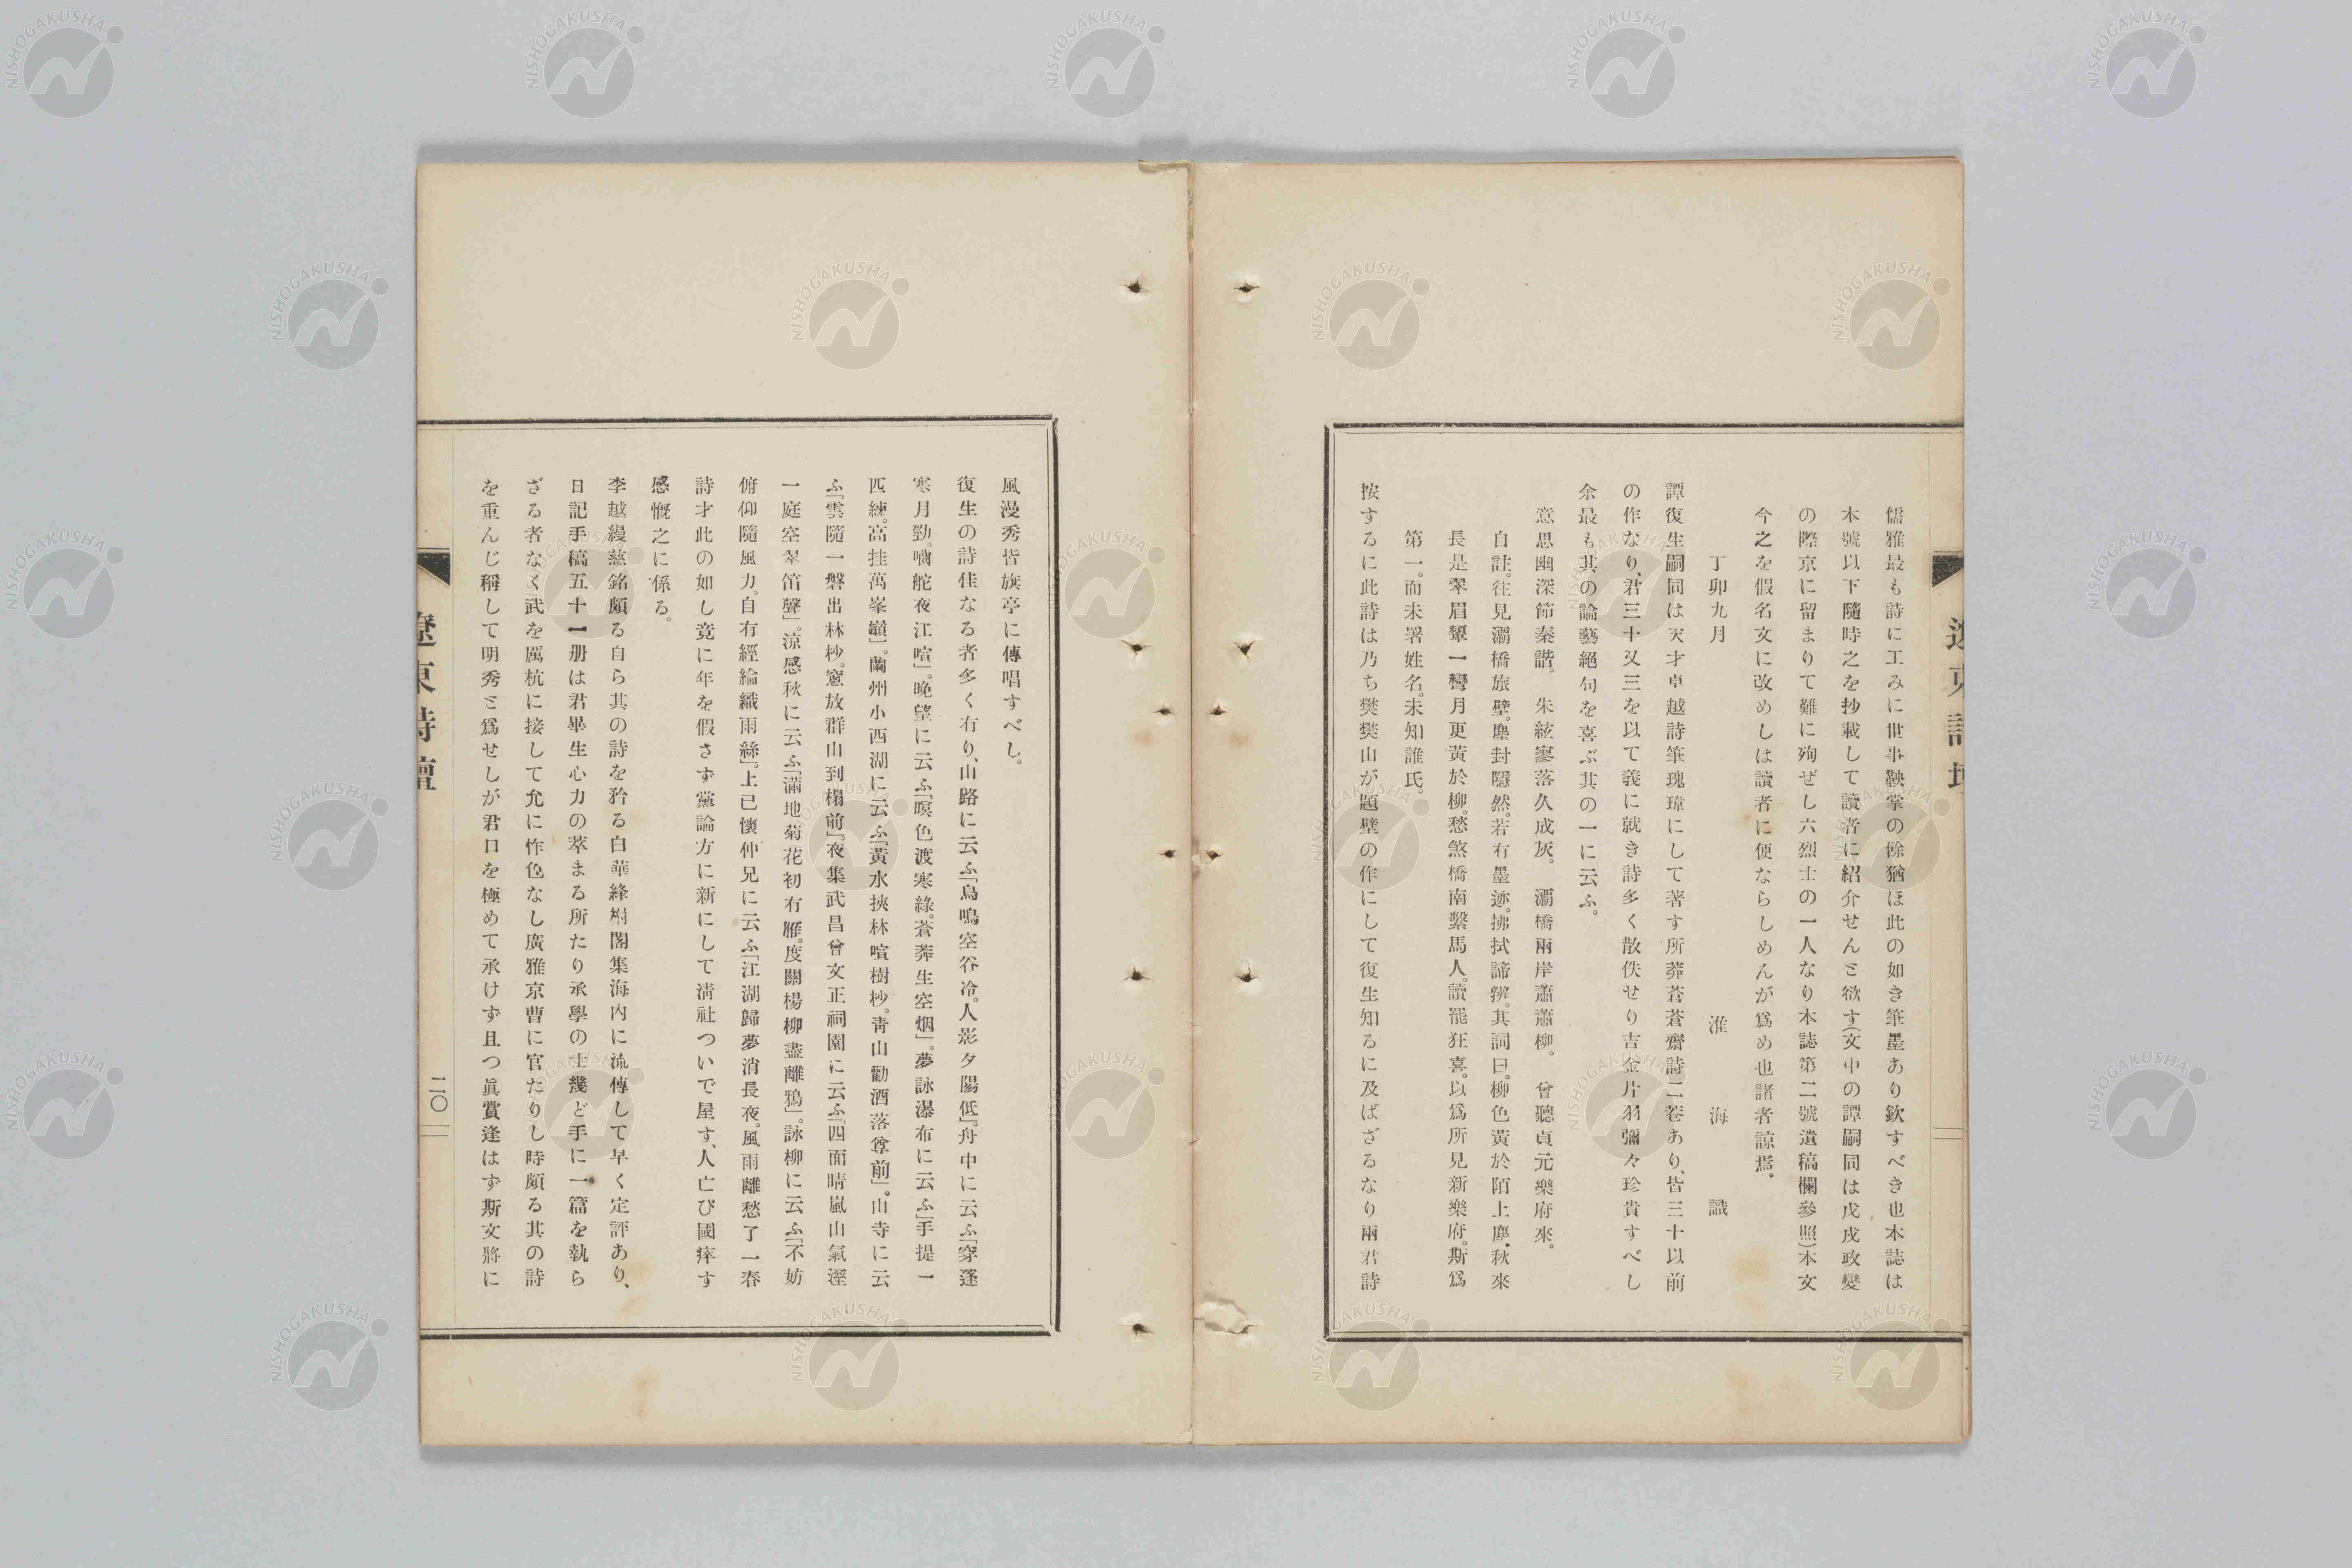 儒雅最も詩に工みに世事鞅掌の餘猶ほ此の如き筆墨あり欽すべき也本誌は
本號以下隨時之を抄載して讀者に紹介せんと欲す(文中の譚嗣同は戊戌政變
の際京に留まりて難に殉ぜし六烈士の一人なり本誌第二號遺稿欄參照)本文
今之を假名文に改めしは讀者に便ならしめんが爲め也諸者諒焉。
丁卯九月　淮海識
譚復生嗣同は天才卓越詩筆瑰瑋にして著す所莽蒼蒼齋詩二卷あり、皆三十以前
の作なり、君三十又三を以て義に就き詩多く散佚せり吉金片羽彌々珍貴すべし
余最も其の論藝絕句を喜ぶ其の一に云ふ。
意思幽深節奏諧。朱絃寥落久成灰。灞橋兩岸蕭蕭柳。曾聽貞元樂府來。
自註。往見灞橋旅壁。塵封隱然。若有墨迹。拂拭諦辨。其詞曰。柳色黃於陌上塵。秋來
長是翠眉顰一彎月更黃於柳。愁煞橋南繫馬人。讀罷狂喜。以爲所見新樂府。斯爲
第一。而未署姓名。未知誰氏。
按するに此詩は乃ち樊樊山が題壁の作にして復生知るに及ばざるなり兩君詩
風漫秀皆旗亭に傳唱すべし。
復生の詩佳なる者多く有り、山路に云ふ「鳥鳴空谷冷。人影夕陽低」。舟中に云ふ「穿蓬
寒月勁。嚙舵夜江喧」。晚望に云ふ「暝色渡寒綠。蒼莽生空烟」。夢詠瀑布に云ふ「手提一
匹練。高挂萬峯巓」。蘭州小西湖に云ふ「黃水挾林喧樹杪。靑山勸酒落尊前」。山寺に云
ふ「雲隨一磬出林杪。窻放群山到榻前」。夜集武昌曾文正祠園に云ふ「四面晴嵐山氣溼
一庭空翠笛聲」。涼感秋に云ふ「滿地菊花初有雁。度關楊柳盡離鴉」。詠柳に云ふ「不妨
俯仰隨風力。自有經綸織雨絲」。上已懷仲兄に云ふ「江湖歸夢消長夜。風雨離愁了一春
詩才此の如し竞に年を假さず黨論方に新にして淸社ついで屋す、人亡び國瘁す
感慨之に係る。
李越縵慈銘頗る自ら其の詩を矜る白華絳柎閣集海內に流傳して早く定評あり、
日記手稿五十一册は君畢生心力の萃まる所たり承學の士幾ど手に一篇を執ら
ざる者なく武を厲杭に接して允に怍色なし廣雅京曹に官たりし時頗る其の詩
を重んじ稱して明秀と爲せしが君口を極めて承けず且つ眞賞逢はず斯文將に
遼東詩壇
二〇
NISHOGAKUSHA